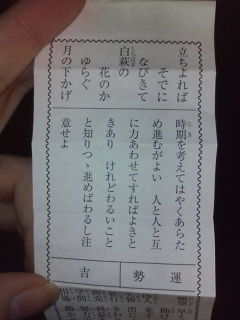 立ちよれば
そでに
なびきて
白萩の
しらはぎ
花のか
ゆらぐ
月の下かげ
時期を考えてはやくあらた
じき
め進むがよい 人と人と互
に力あわせてすればよきと
きあり けれどわるいこと
と知りつゝ進めばわるし注
意せよ
運勢
吉